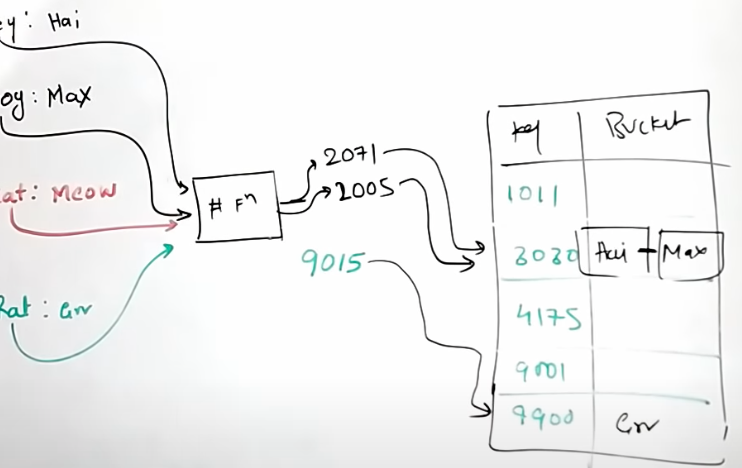 ey: Hai
oy: Max
at: Meow
Rat: Grr
# Fⁿ
2071
2005
9015
key Bucket
1011
3030 Hai Max
4175
9001
9900 Grr